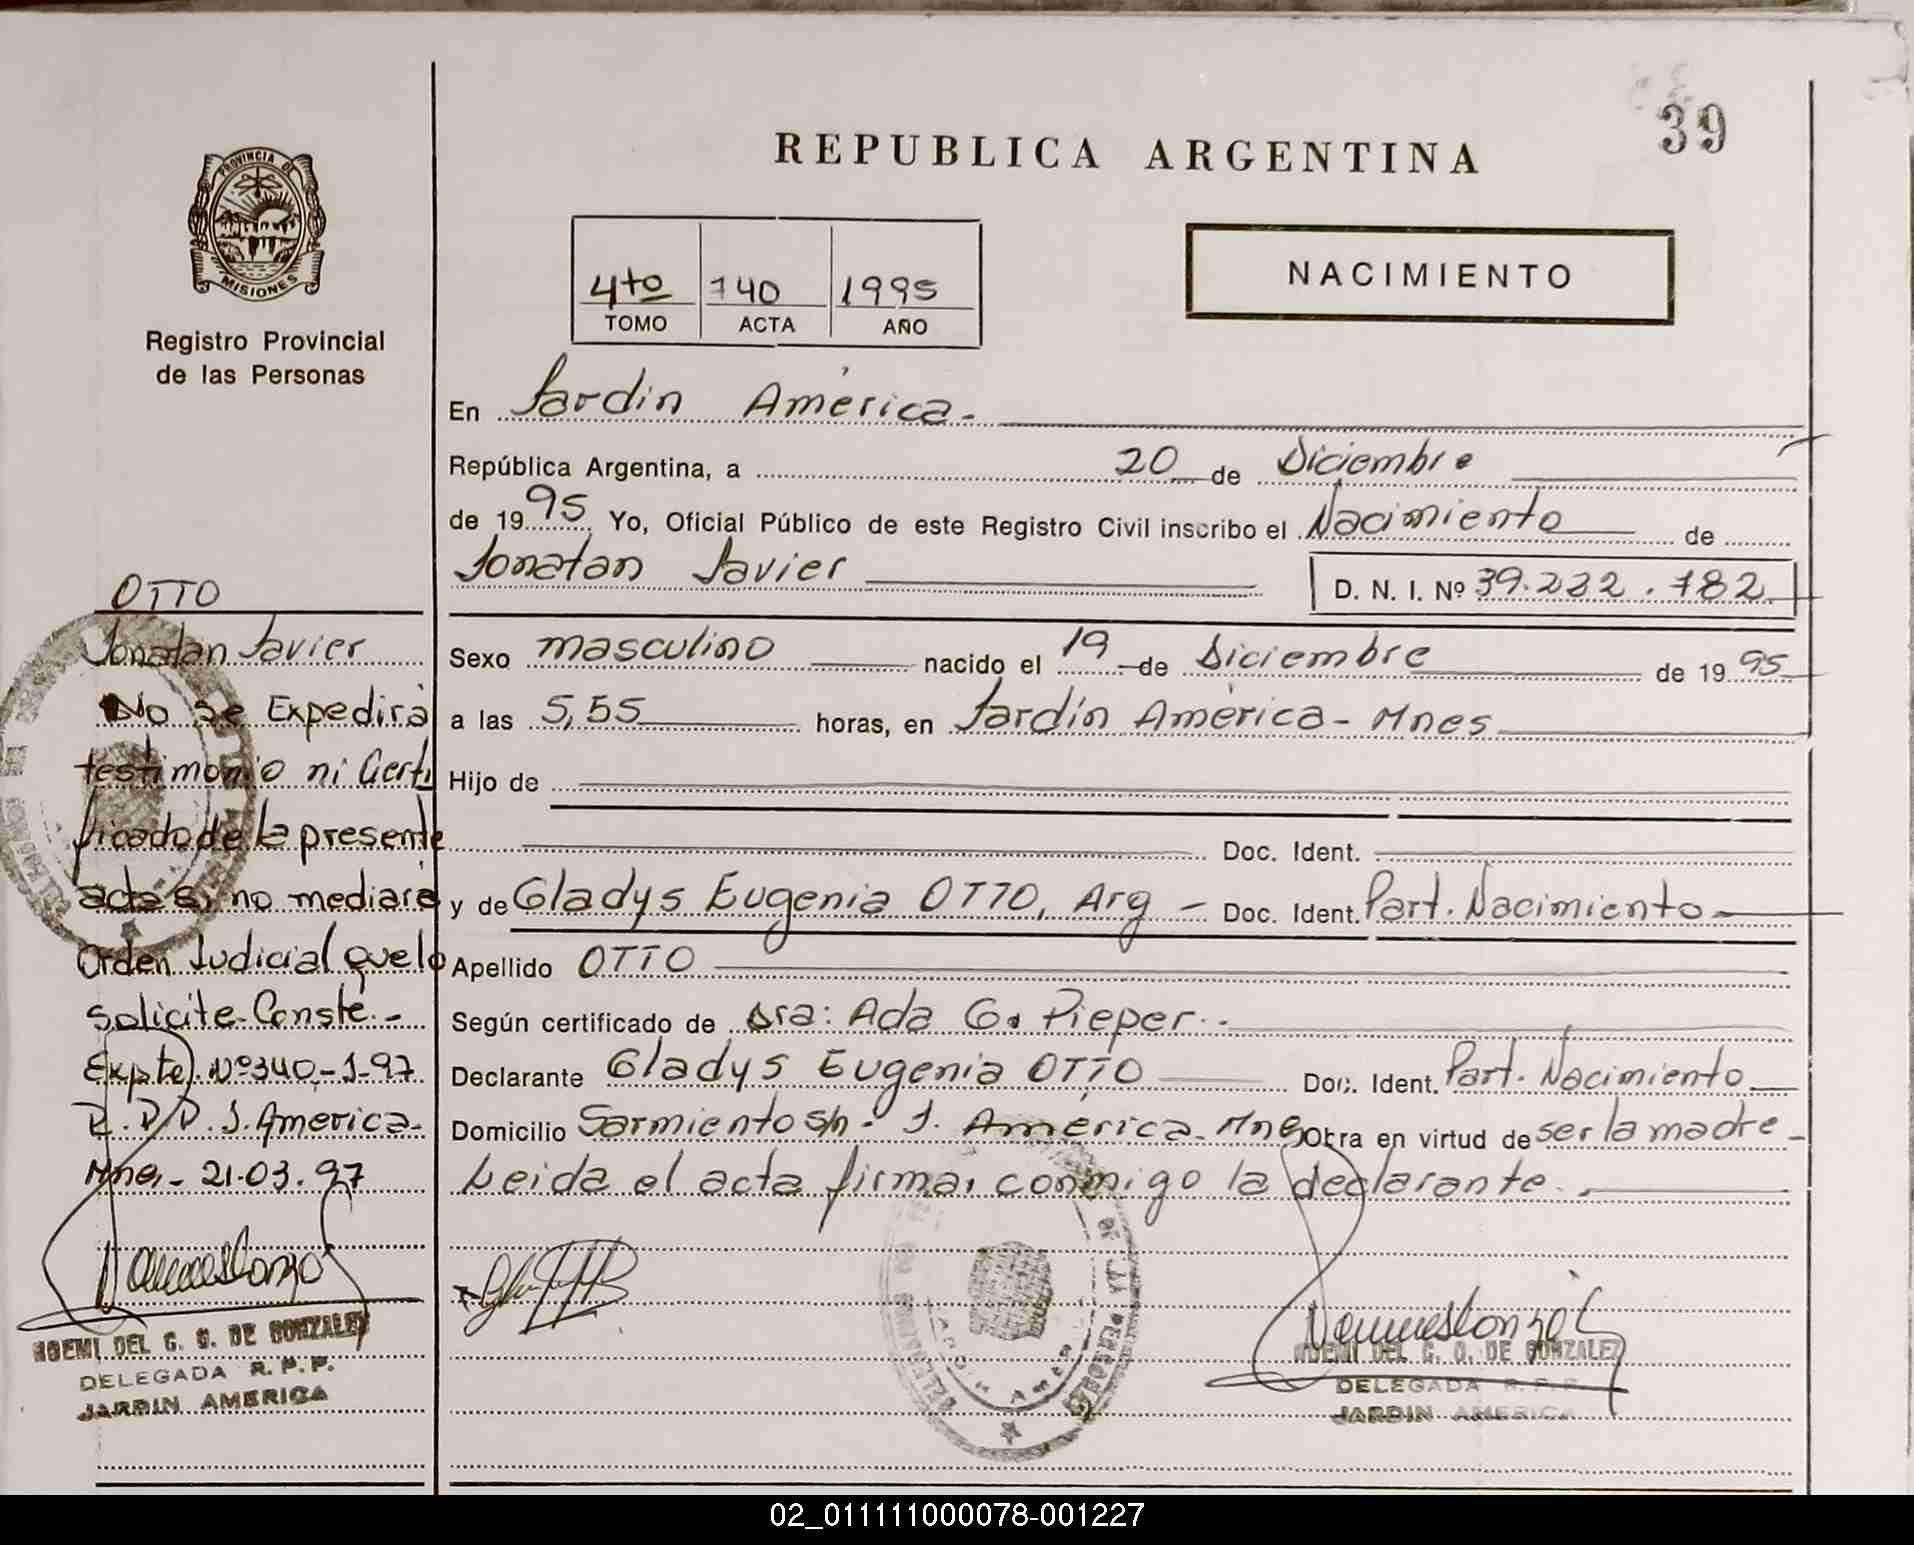 39
REPUBLICA ARGENTINA
PROVINCIA DE
MISIONES
Registro Provincial
de las Personas
4to 140 1995
TOMO ACTA AÑO
NACIMIENTO
En Jardin América.-
República Argentina, a 20 de Diciembre
de 1995. Yo, Oficial Público de este Registro Civil inscribo el Nacimiento de
Jonatan Javier D. N. I. Nº 39.222.782
Sexo masculino nacido el 19 de Diciembre de 1995
a las 5,55 horas, en Jardín América - Mnes
Hijo de
Doc. Ident.
y de Gladys Eugenia OTTO, Arg - Doc. Ident. Part. Nacimiento
Apellido OTTO
Según certificado de Dra: Ada G. Pieper.-
Declarante Gladys Eugenia OTTO Doc. Ident. Part. Nacimiento
Domicilio Sarmiento s/n - J. América. Mnes Obra en virtud de ser la madre
Leida el acta firma, conmigo la declarante.
NOEMI DEL C. G. DE GONZALEZ
DELEGADA R. P. P.
JARDIN AMERICA
OTTO
Jonatan Javier
No se Expedirá
testimonio ni Certi
ficado de la presente
acta si no mediare
Orden Judicial que lo
solicite. Conste.-
Expte. Nº 340-J-97
J. América.
Mnes.- 21.03.97
NOEMI DEL C. G. DE GONZALEZ
DELEGADA R. P. P.
JARDIN AMERICA
02_011111000078-001227